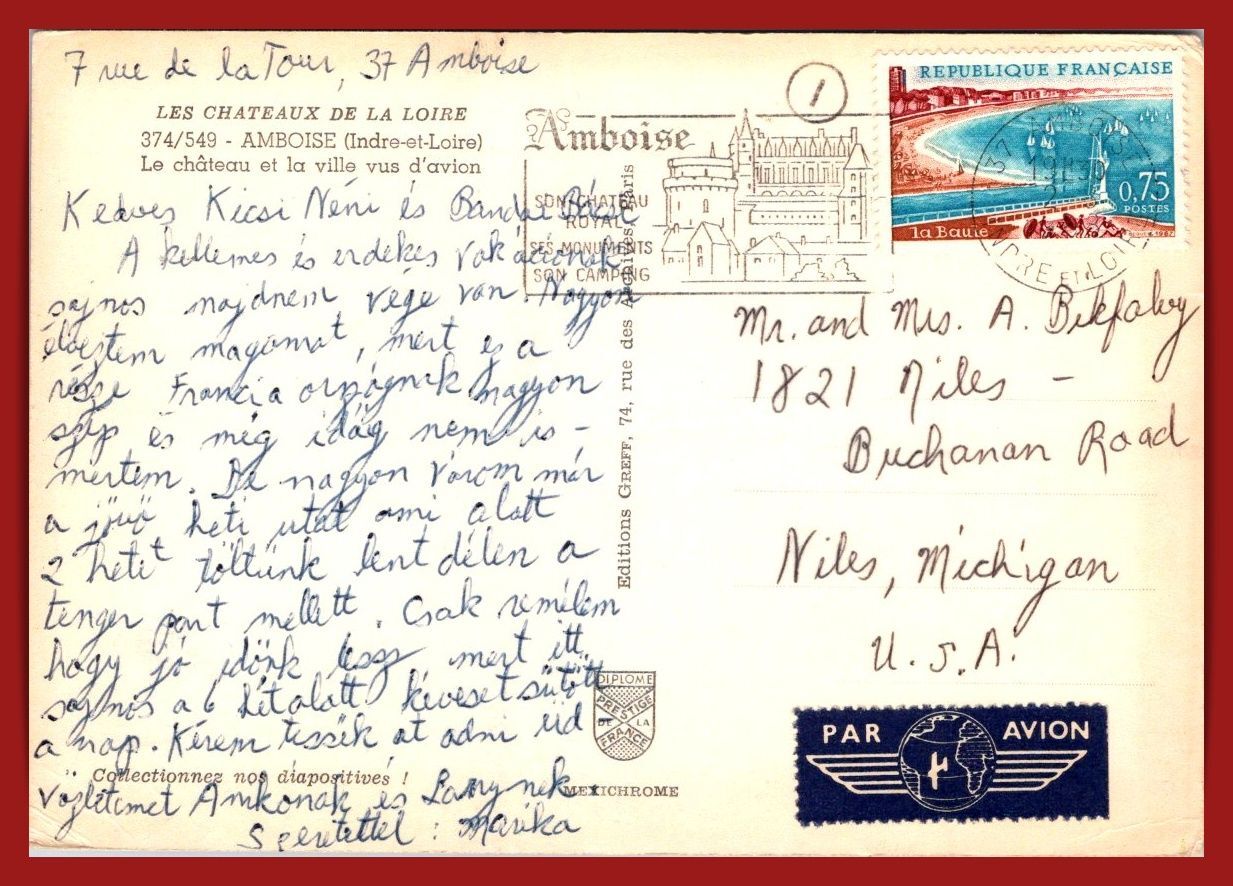 7 rue de la Tour, 37 Amboise
LES CHATEAUX DE LA LOIRE
374/549 - AMBOISE (Indre-et-Loire)
Le château et la ville vus d'avion
Kedves Kicsi Néni és Bandi Bácsi
A kellemes és erdekes vakációnak
sajnos majdnem vége van. Nagyon
élveztem magamat, mert ez a
része Francia országnak nagyon
szép és még idáig nem is-
mertem. De nagyon várom már
a jövő heti utat ami alatt
2 hetet töltünk lent délen a
tenger part mellett. Csak remélem
hogy jó időnk lessz mert itt
sajnos a 6 hét alatt keveset sütött
a nap. Kérem tessék át adni üd
vözletemet Amikonak és Larrynek
Szeretettel: Marika
Collectionnez nos diapositives !
MEXICHROME
DIPLOME
PRESTIGE
DE LA
FRANCE
Editions GREFF, 74, rue des Archives, Paris
1
Amboise
SON CHATEAU
ROYAL
SES MONUMENTS
SON CAMPING
REPUBLIQUE FRANÇAISE
0,75
POSTES
la Baule
37 AMBOISE
INDRE ET LOIRE
Mr. and Mrs. A. Bikfalvy
1821 Niles -
Buchanan Road
Niles, Michigan
U.S.A.
PAR AVION